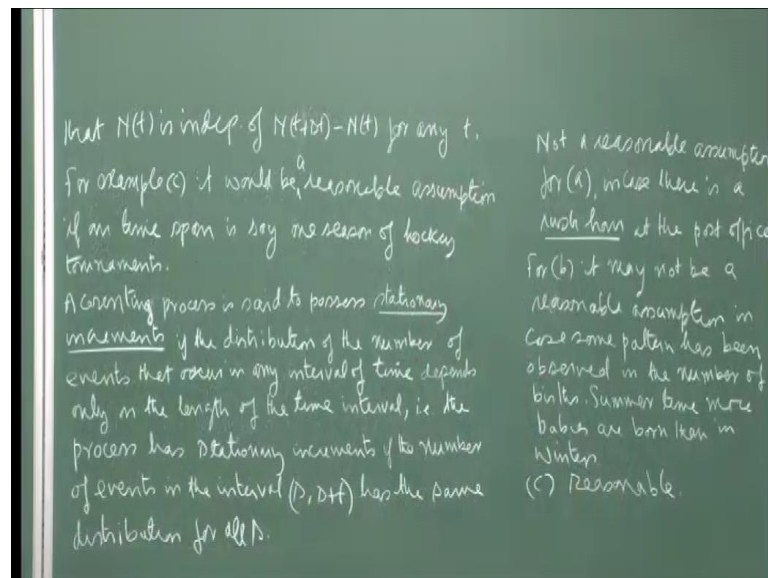 that N(t) is indep. of N(t+s)-N(t) for any t.
For example(c) it would be a reasonable assumption
if our time span is say one season of hockey
tournaments.
A Counting process is said to possess stationary
increments if the distribution of the number of
events that occur in any interval of time depends
only on the length of the time interval, i.e. the
process has stationary increments if the number
of events in the interval (s, s+t) has the same
distribution for all s.
Not a reasonable assumption
for (a), in case there is a
rush hour at the post office
For (b) it may not be a
reasonable assumption in
case some pattern has been
observed in the number of
births. Summer time more
babies are born than in
winter
(c) Reasonable.